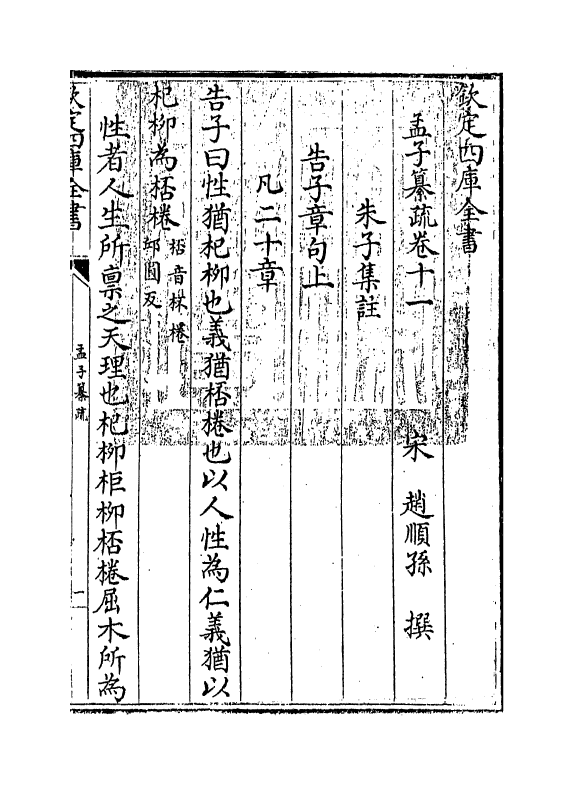 欽定四庫全書
孟子纂疏卷十一
宋 趙順孫 撰
朱子集註
告子章句上
凡二十章
告子曰性猶杞柳也義猶桮棬也以人性為仁義猶以
杞柳為桮棬
桮音杯棬
邱圓反
性者人生所禀之天理也杞柳柜柳桮棬屈木所為
欽定四庫全書
孟子纂疏
一